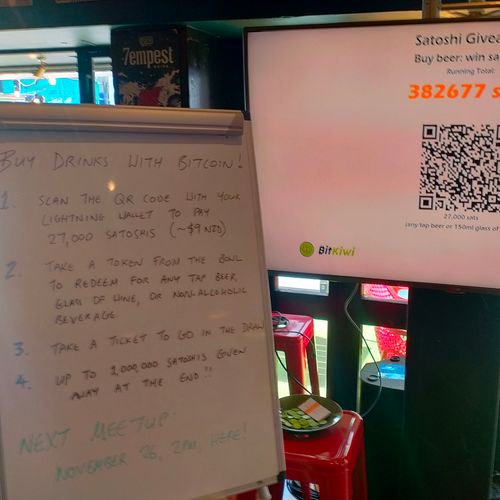 7empest
BUY DRINKS WITH BITCOIN!
1. SCAN THE QR CODE WITH YOUR
LIGHTNING WALLET TO PAY
27,000 SATOSHIS (~$9 NZD)
2. TAKE A TOKEN FROM THE BOWL
TO REDEEM FOR ANY TAP BEER,
GLASS OF WINE, OR NON-ALCOHOLIC
BEVERAGE
3. TAKE A TICKET TO GO IN THE DRAW
4. UP TO 1,000,000 SATOSHIS GIVEN
AWAY AT THE END!!
NEXT MEETUP:
NOVEMBER 26, 2PM, HERE!
Satoshi Givea
Buy beer: win sa
Running Total:
382677 s
27,000 sats
(any tap beer or 150ml glass of
BitKiwi